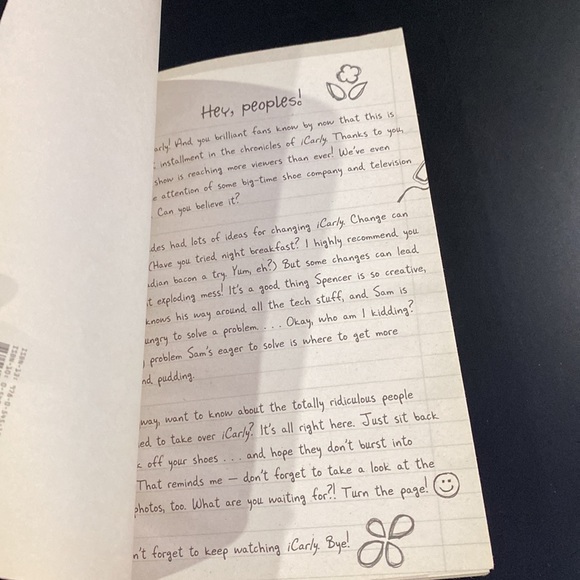 Hey, peoples!
arly! And you brilliant fans know by now that this is
installment in the chronicles of iCarly. Thanks to you,
show is reaching more viewers than ever! We've even
e attention of some big-time shoe company and television
Can you believe it?
des had lots of ideas for changing iCarly. Change can
(Have you tried night breakfast? I highly recommend you
dian bacon a try. Yum, eh?) But some changes can lead
t exploding mess! It's a good thing Spencer is so creative,
knows his way around all the tech stuff, and Sam is
ungry to solve a problem . . . . Okay, who am I kidding?
problem Sam's eager to solve is where to get more
nd pudding.
way, want to know about the totally ridiculous people
ed to take over iCarly? It's all right here. Just sit back
k off your shoes . . . and hope they don't burst into
That reminds me — don't forget to take a look at the
photos, too. What are you waiting for?! Turn the page!
n't forget to keep watching iCarly. Bye!